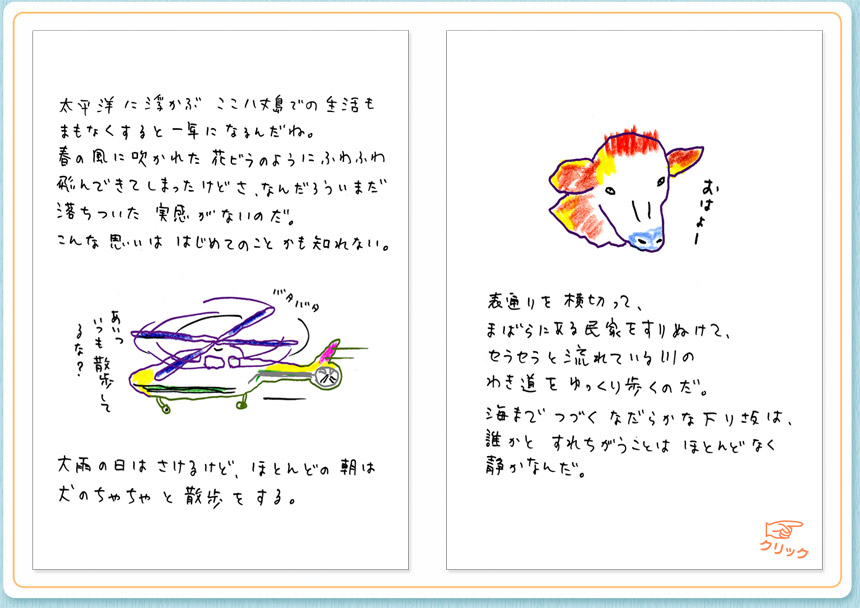 太平洋に浮かぶ ここ八丈島での生活も
まもなくすると一年になるんだね。
春の風に吹かれた 花びらのようにふわふわ
飛んできてしまったけどさ、なんだろういまだ
落ちついた 実感がないのだ。
こんな思いは はじめてのことかも知れない。
バタバタ
あいつ
いつも散歩して
るな?
大雨の日はさけるけど、ほとんどの朝は
犬のちゃちゃと散歩をする。
おはよー
表通りを横切って、
まばらにある民家をすりぬけて、
せうせうと流れている川の
わき道をゆっくり歩くのだ。
海までつづくなだらかな下り坂は、
誰かとすれちがうことはほとんどなく
静かなんだ。
クリック